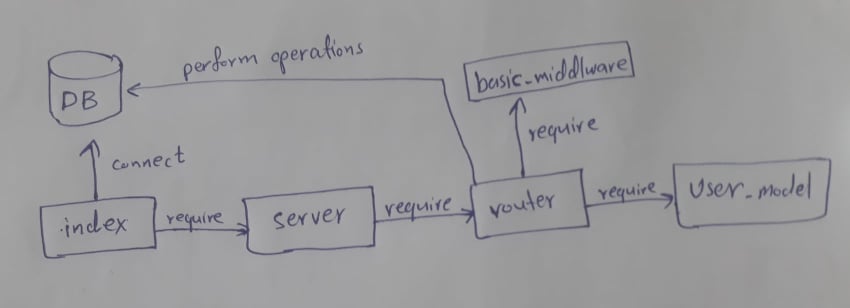 perform operations
basic_middlware
DB
require
connect
index
require
server
require
router
require
User_model